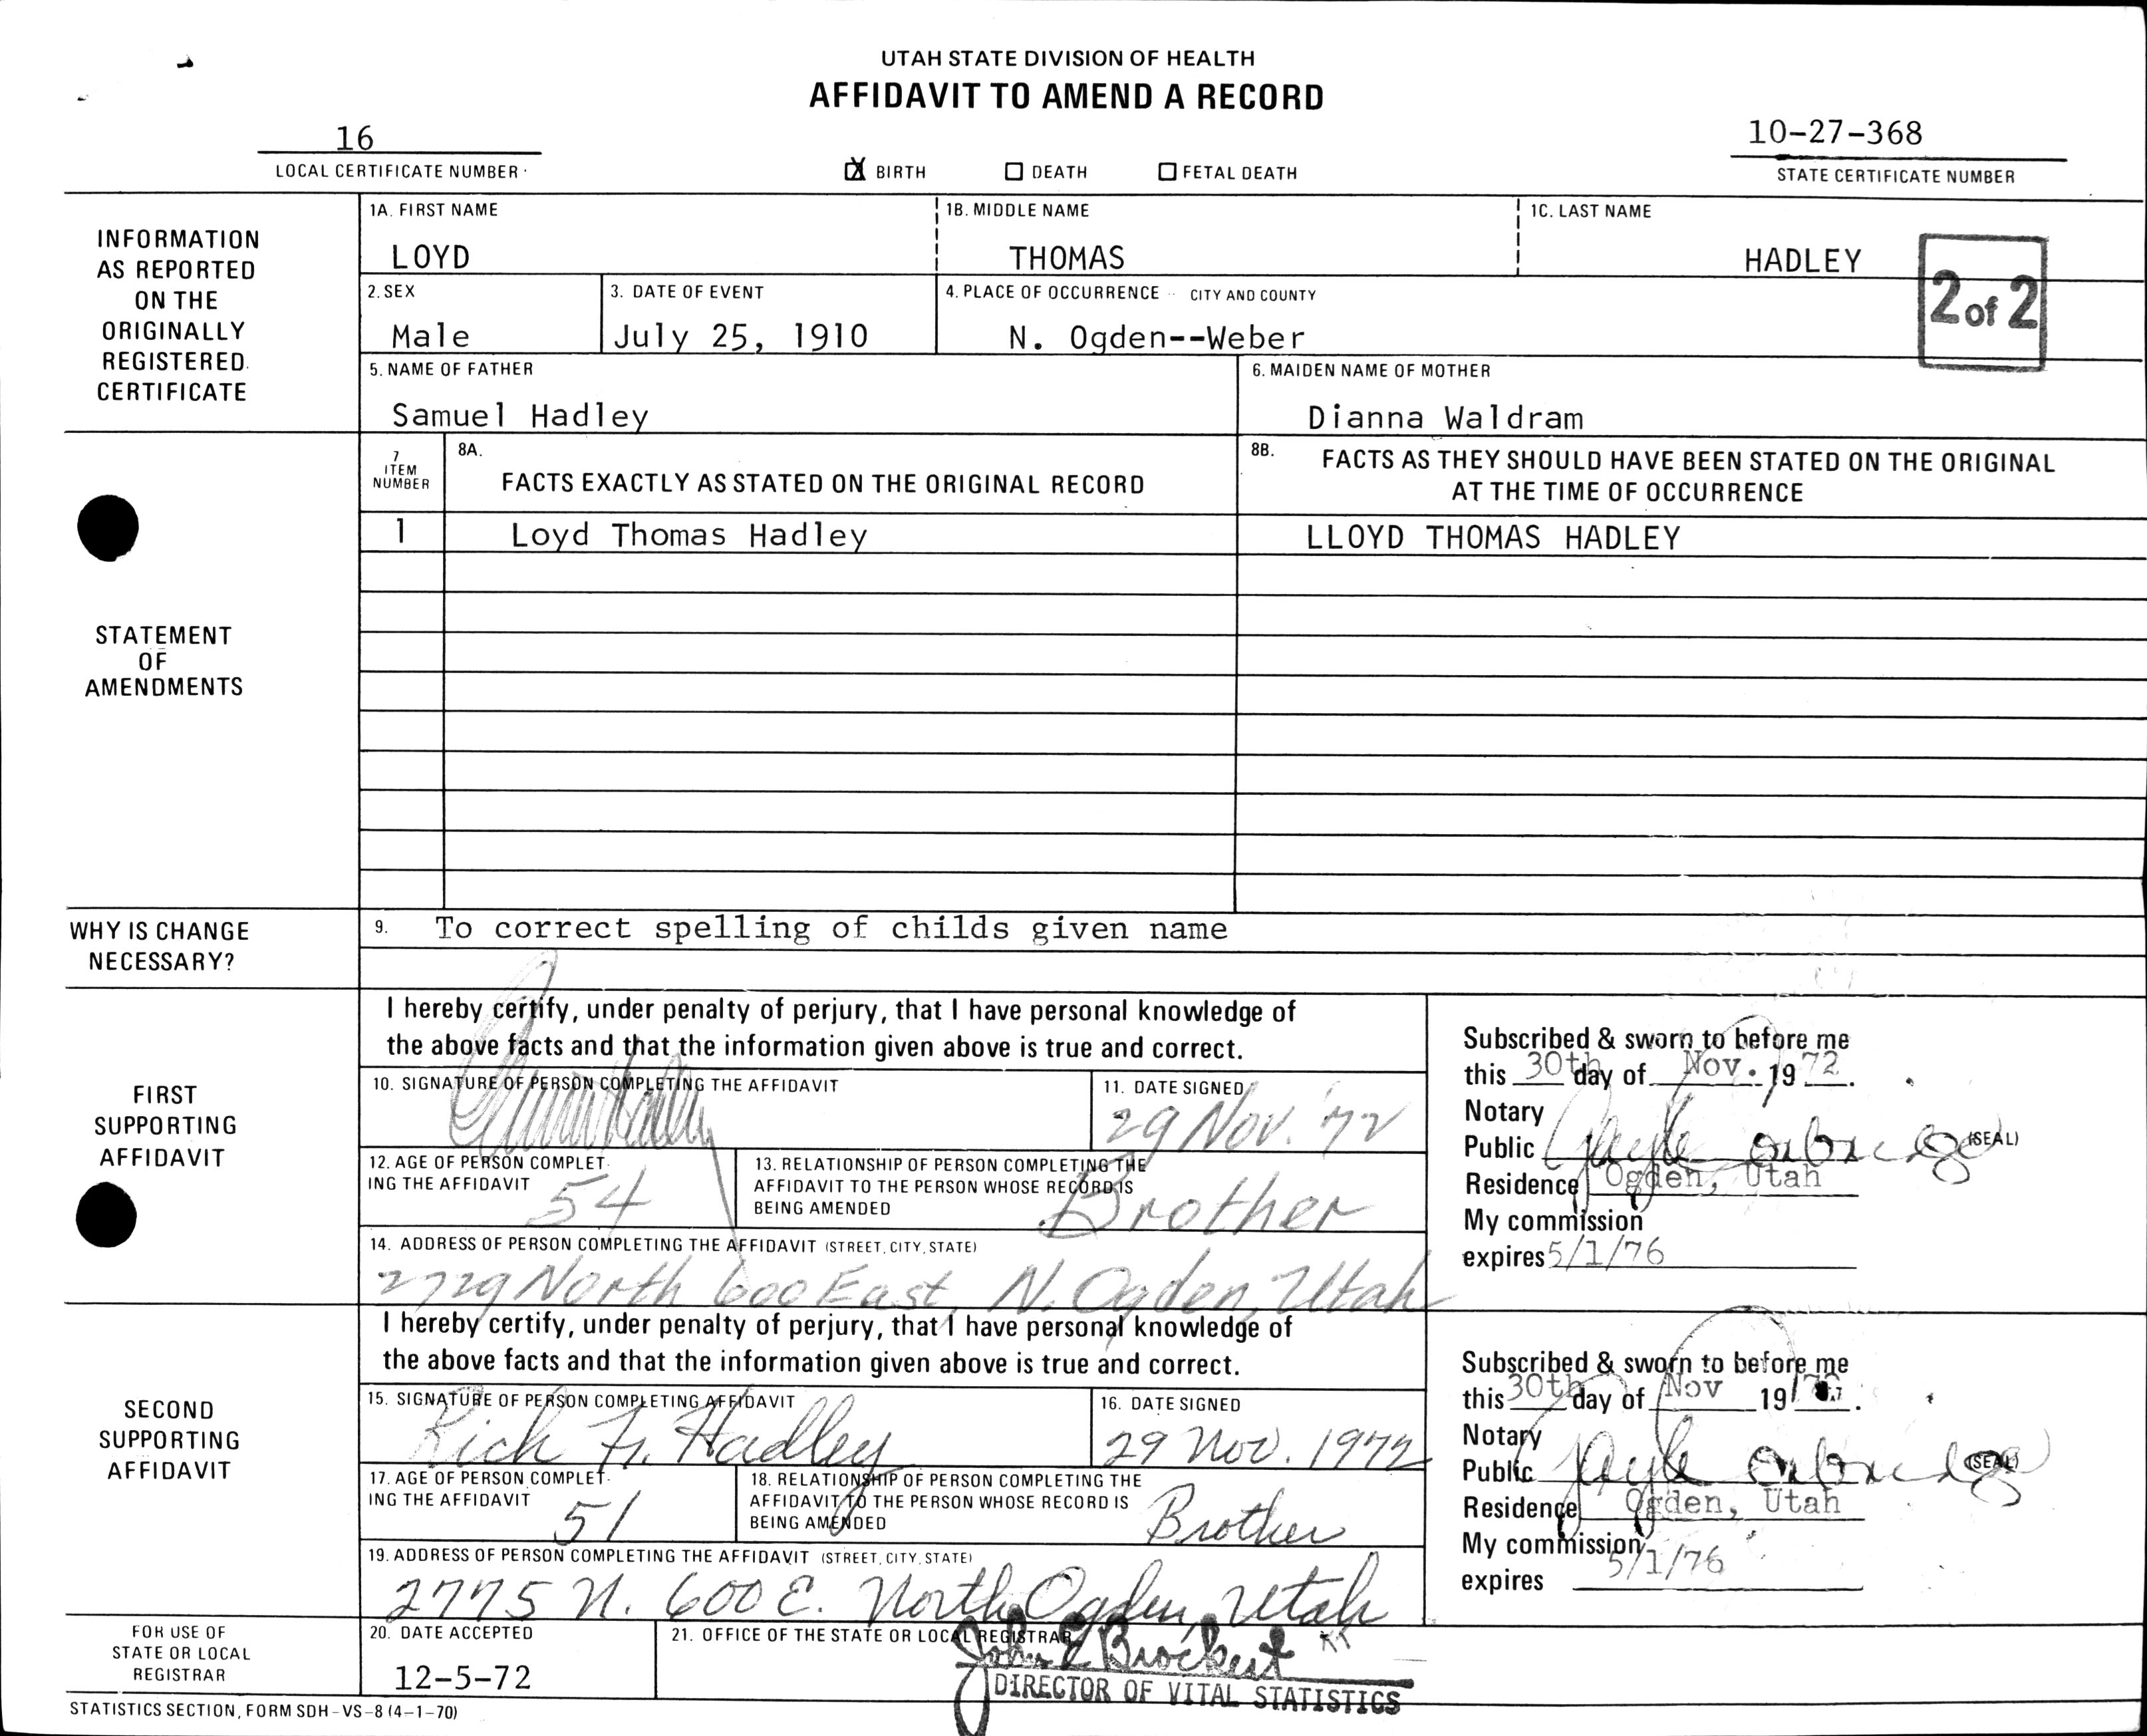 UTAH STATE DIVISION OF HEALTH
AFFIDAVIT TO AMEND A RECORD
16
LOCAL CERTIFICATE NUMBER
X BIRTH DEATH FETAL DEATH
10-27-368
STATE CERTIFICATE NUMBER
INFORMATION AS REPORTED ON THE ORIGINALLY REGISTERED CERTIFICATE
1A. FIRST NAME 1B. MIDDLE NAME 1C. LAST NAME
LOYD THOMAS HADLEY
2 of 2
2. SEX 3. DATE OF EVENT 4. PLACE OF OCCURRENCE - CITY AND COUNTY
Male July 25, 1910 N. Ogden--Weber
5. NAME OF FATHER 6. MAIDEN NAME OF MOTHER
Samuel Hadley Dianna Waldram
STATEMENT OF AMENDMENTS
7 ITEM NUMBER
8A. FACTS EXACTLY AS STATED ON THE ORIGINAL RECORD
8B. FACTS AS THEY SHOULD HAVE BEEN STATED ON THE ORIGINAL
AT THE TIME OF OCCURRENCE
1 Loyd Thomas Hadley LLOYD THOMAS HADLEY
WHY IS CHANGE NECESSARY?
9. To correct spelling of childs given name
FIRST SUPPORTING AFFIDAVIT
I hereby certify, under penalty of perjury, that I have personal knowledge of
the above facts and that the information given above is true and correct.
10. SIGNATURE OF PERSON COMPLETING THE AFFIDAVIT
11. DATE SIGNED
29 Nov. '72
12. AGE OF PERSON COMPLETING THE AFFIDAVIT
54
13. RELATIONSHIP OF PERSON COMPLETING THE
AFFIDAVIT TO THE PERSON WHOSE RECORD IS
BEING AMENDED
Brother
14. ADDRESS OF PERSON COMPLETING THE AFFIDAVIT (STREET, CITY, STATE)
2729 North 600 East, N. Ogden, Utah
Subscribed & sworn to before me
this 30th day of Nov. 1972.
Notary
Public (SEAL)
Residence Ogden, Utah
My commission
expires 5/1/76
SECOND SUPPORTING AFFIDAVIT
I hereby certify, under penalty of perjury, that I have personal knowledge of
the above facts and that the information given above is true and correct.
15. SIGNATURE OF PERSON COMPLETING AFFIDAVIT
Rich Hadley
16. DATE SIGNED
29 Nov. 1972
17. AGE OF PERSON COMPLETING THE AFFIDAVIT
51
18. RELATIONSHIP OF PERSON COMPLETING THE
AFFIDAVIT TO THE PERSON WHOSE RECORD IS
BEING AMENDED
Brother
19. ADDRESS OF PERSON COMPLETING THE AFFIDAVIT (STREET, CITY, STATE)
2775 N. 600 E. North Ogden, Utah
Subscribed & sworn to before me
this 30th day of Nov 19
Notary
Public (SEAL)
Residence Ogden, Utah
My commission
expires 5/1/76
FOR USE OF STATE OR LOCAL REGISTRAR
20. DATE ACCEPTED
12-5-72
21. OFFICE OF THE STATE OR LOCAL REGISTRAR
John E Brockert
DIRECTOR OF VITAL STATISTICS
STATISTICS SECTION, FORM SDH-VS-8 (4-1-70)